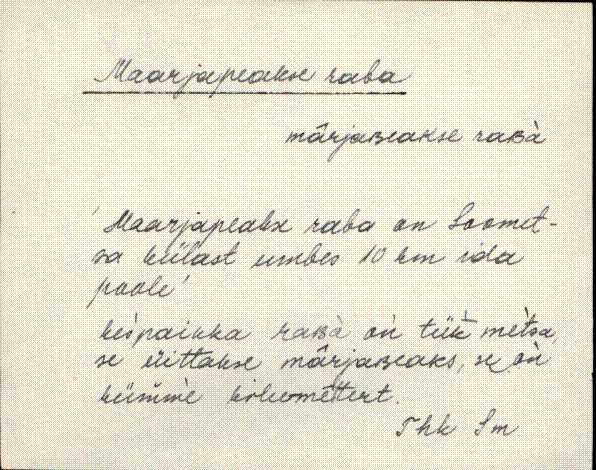 Maarjapeakse raba
mârjaʙeakse raʙà
'Maarjapeakse raba on Soomet-
sa külast umbes 10 km ida
poole'
kèspaikka raʙà oǹ tük̀ mètsa,
se üittakse mârjaʙeaks, se oǹ
kümmè kilumêttert.
Thk Sm